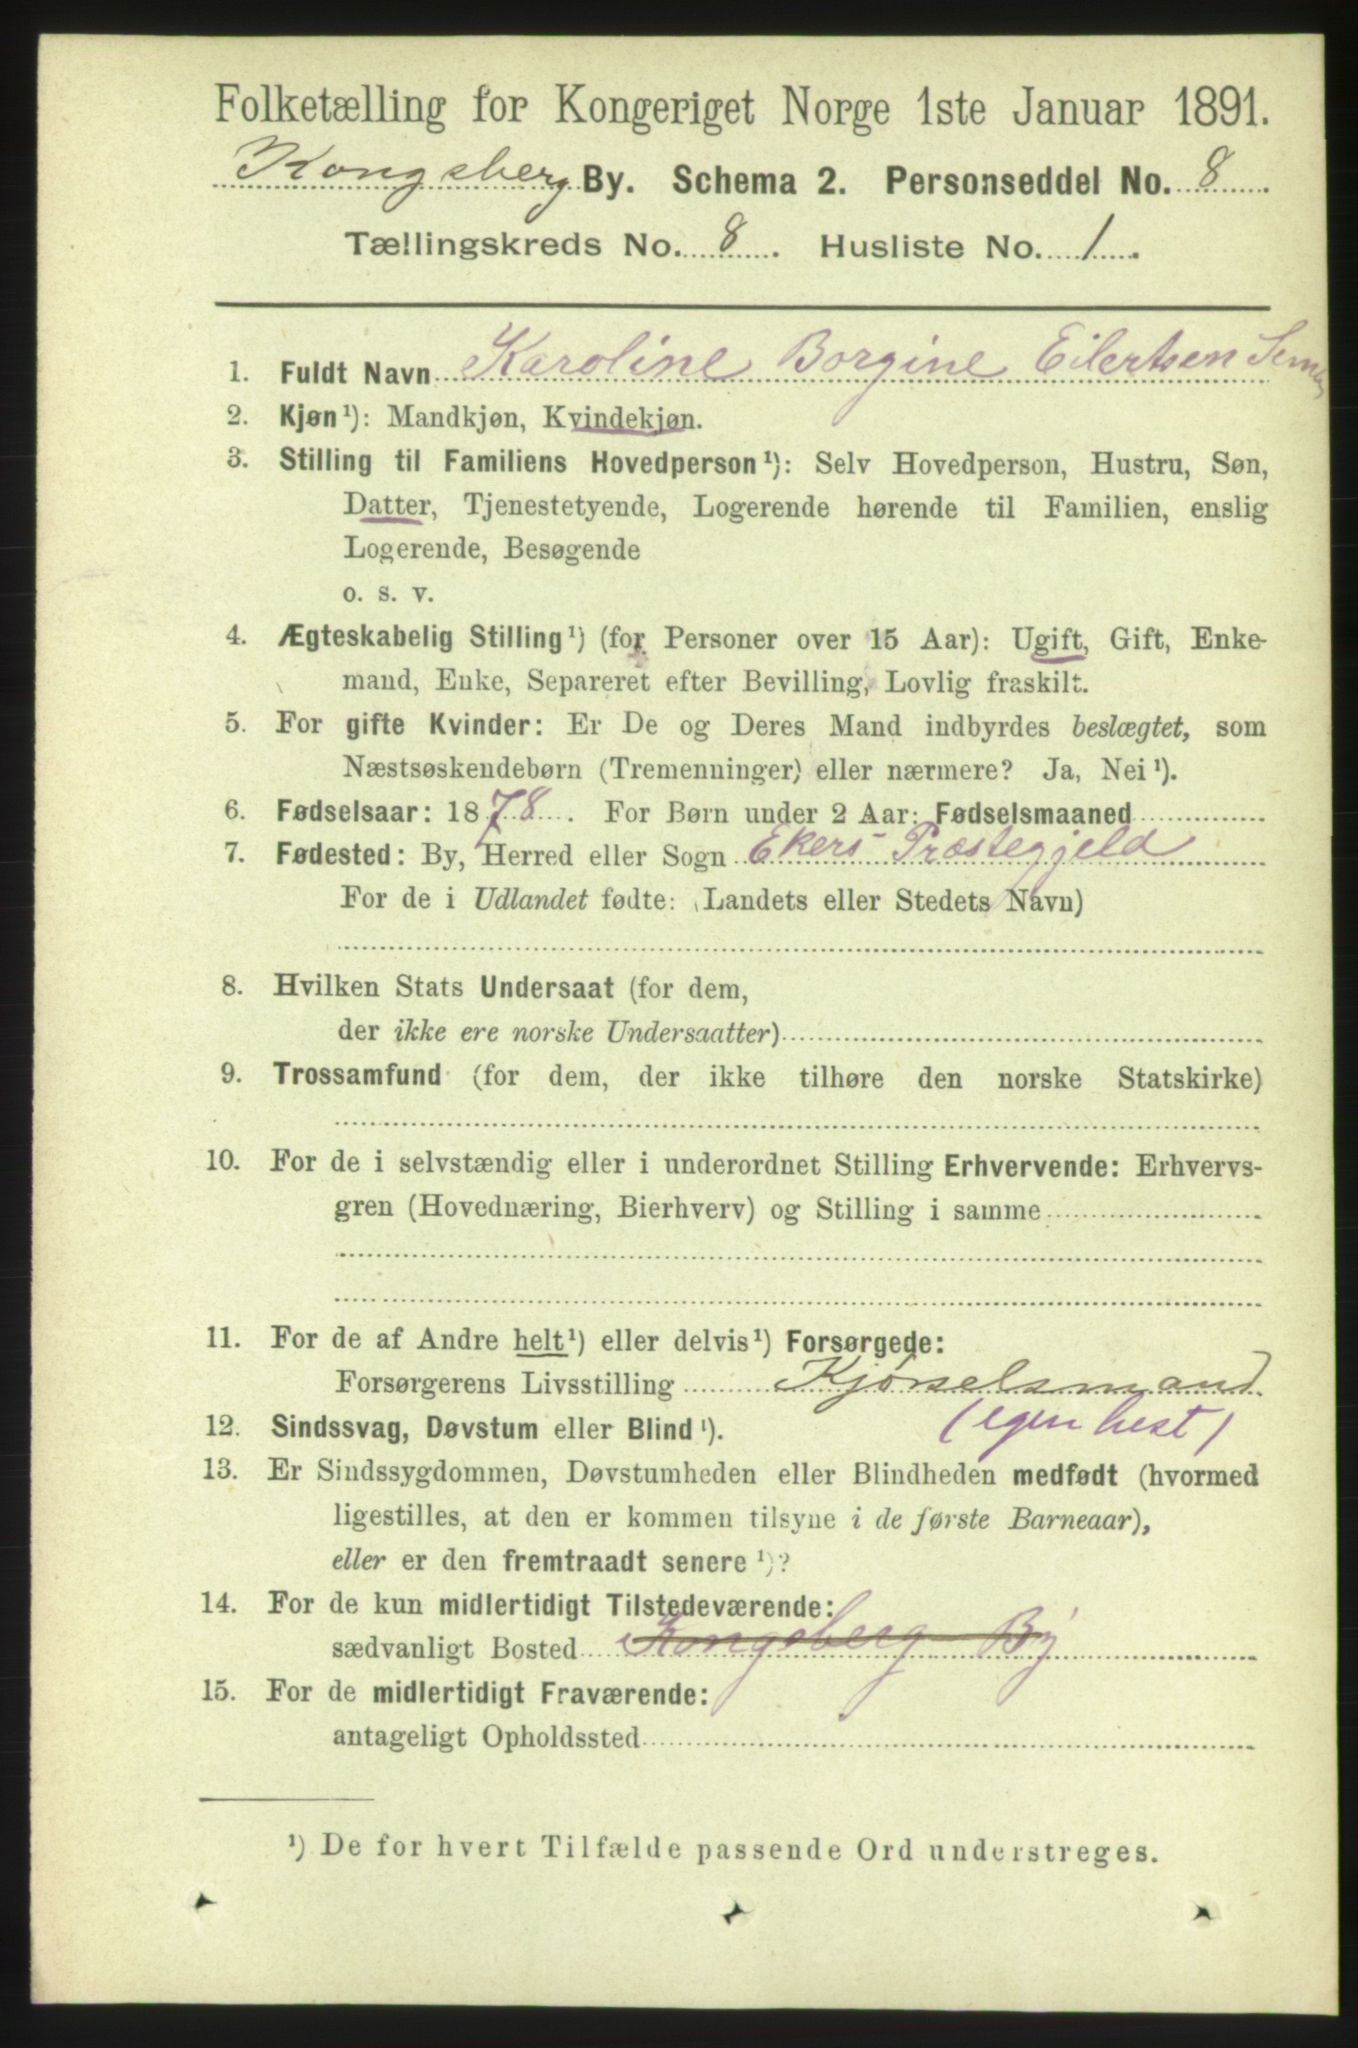 Folketælling for Kongeriget Norge 1ste Januar 1891.
Kongsberg By. Schema 2. Personseddel No. 8
Tællingskreds No. 8. Husliste No. 1.
1. Fuldt Navn Karoline Borgine Eilertsen
2. Kjøn¹): Mandkjøn, Kvindekjøn.
3. Stilling til Familiens Hovedperson¹): Selv Hovedperson, Hustru, Søn,
Datter, Tjenestetyende, Logerende hørende til Familien, enslig
Logerende, Besøgende
o. s. v.
4. Ægteskabelig Stilling¹) (for Personer over 15 Aar): Ugift, Gift, Enke-
mand, Enke, Separeret efter Bevilling, Lovlig fraskilt.
5. For gifte Kvinder: Er De og Deres Mand indbyrdes beslægtet, som
Næstsøskendebørn (Tremenninger) eller nærmere? Ja, Nei¹).
6. Fødselsaar: 1878. For Børn under 2 Aar: Fødselsmaaned
7. Fødested: By, Herred eller Sogn Ekers Præstegjeld
For de i Udlandet fødte: (Landets eller Stedets Navn)
8. Hvilken Stats Undersaat (for dem,
der ikke ere norske Undersaatter)
9. Trossamfund (for dem, der ikke tilhøre den norske Statskirke)
10. For de i selvstændig eller i underordnet Stilling Erhvervende: Erhvervs-
gren (Hovednæring, Bierhverv) og Stilling i samme
11. For de af Andre helt¹) eller delvis¹) Forsørgede:
Forsørgerens Livsstilling Kjørselsmand
(egen hest)
12. Sindssvag, Døvstum eller Blind¹).
13. Er Sindssygdommen, Døvstumheden eller Blindheden medfødt (hvormed
ligestilles, at den er kommen tilsyne i de første Barneaar),
eller er den fremtraadt senere¹)?
14. For de kun midlertidigt Tilstedeværende:
sædvanligt Bosted Kongsberg By
15. For de midlertidigt Fraværende:
antageligt Opholdssted
¹) De for hvert Tilfælde passende Ord understreges.